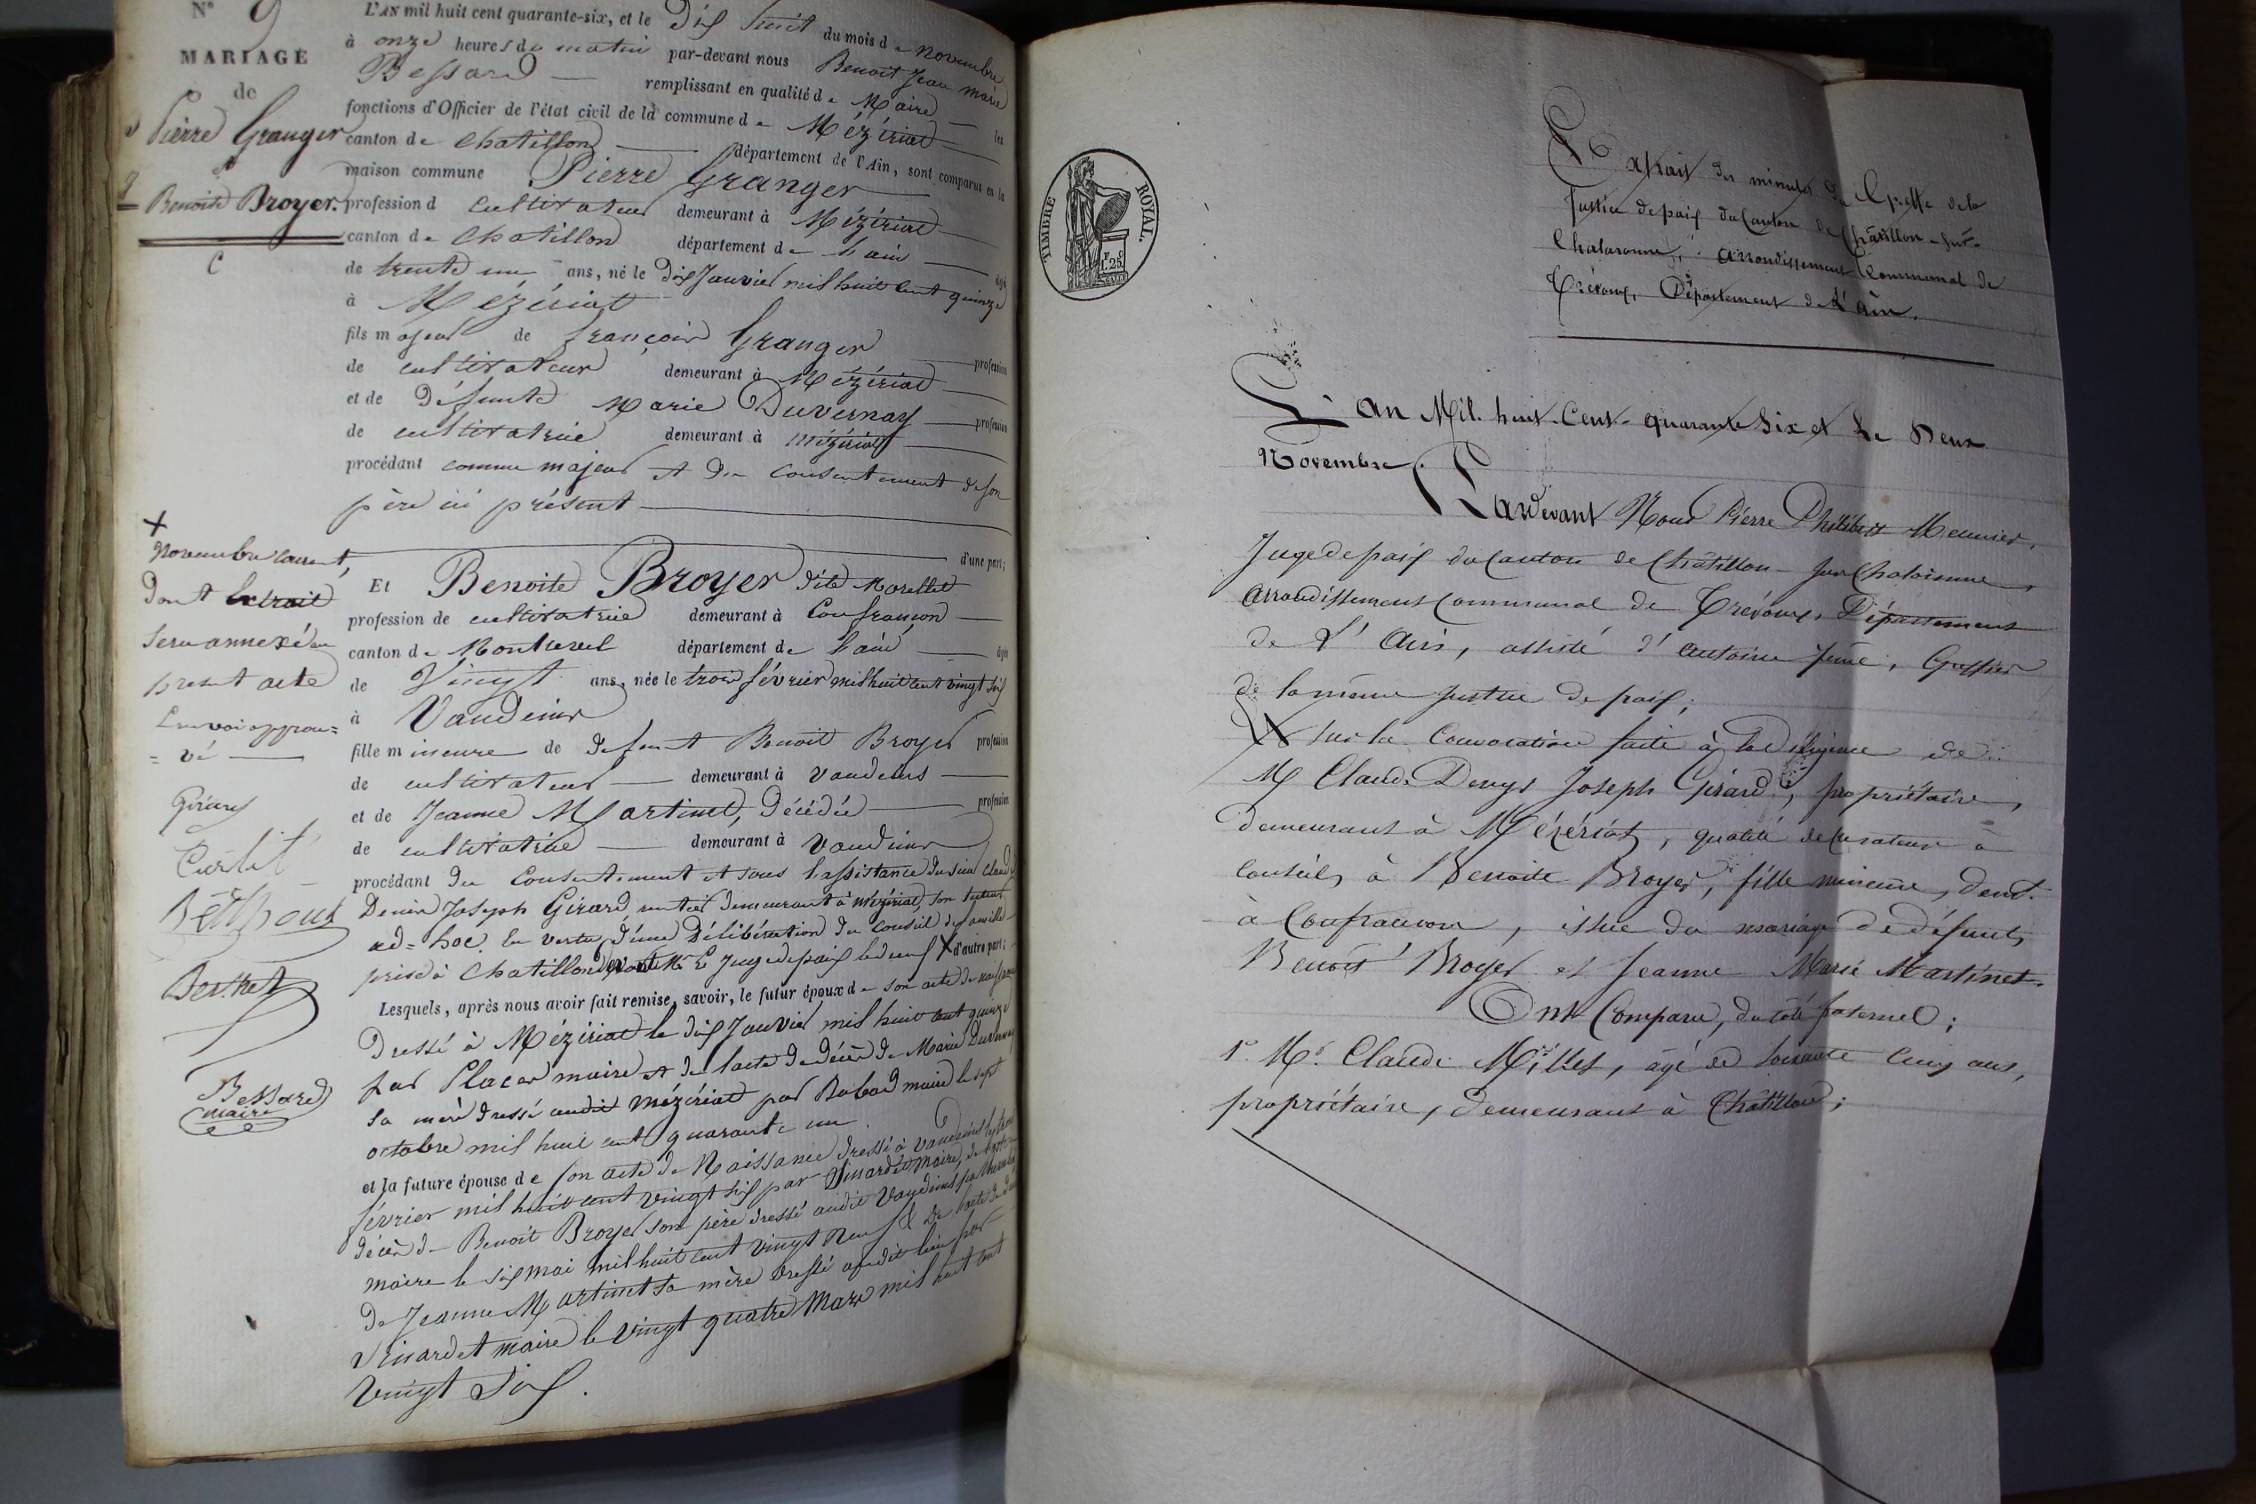 N° 9
MARIAGE
de
Pierre Granger
et
Benoite Broyer.
C
L'AN mil huit cent quarante-six, et le Dix huit du mois de novembre
à onze heures du matin par-devant nous Benoit Jean marie
Bessard remplissant en qualité de Maire les
fonctions d'Officier de l'état civil de la commune de Mézériat
canton de Chatillon département de l'Ain, sont comparus en la
maison commune Pierre Granger
profession d cultivateur demeurant à Mézériat
canton de Chatillon département de l'ain âgé
de trente un ans, né le Dix Janvier mil huit cent quinze
à Mézériat
fils majeur de françois Granger profession
de cultivateur demeurant à Mézériat
et de Défunte Marie Duvernay profession
de cultivatrice demeurant à Mézériat
procédant comme majeur et du consentement de son
père ici présent
d'une part;
Et Benoite Broyer dite Morellet
profession de cultivatrice demeurant à Confrançon
canton de Montrevel département de l'ain âgée
de Vingt ans, née le trois février mil huit cent vingt six
à Vandeins
fille mineure de defunt Benoit Broyer profession
de cultivateur demeurant à Vandeins
et de Jeanne Martinet, Décédée profession
de cultivatrice demeurant à Vandeins
procédant du consentement et sous l'assistance du sieur Claude
Denis Joseph Girard rentier demeurant à Mézériat, son tuteur
ad-hoc en vertu d'une Délibération du conseil de famille
prise à Chatillon devant Mr le Juge de paix le deux X d'autre part;
Lesquels, après nous avoir fait remise, savoir, le futur époux de son acte de naissance
Dressé à Mézériat le dix Janvier mil huit cent quinze
par Placar maire et de l'acte de décès de Marie Duvernay
sa mère dressé audit Mézériat par Rabod maire le sept
octobre mil huit cent quarante un.
et la future épouse de son acte de Naissance dressé à Vandeins le trois
février mil huit cent vingt six par Vinardet maire, de l'acte de
décès de Benoit Broyer son père dressé audit Vandeins par
maire le six mai mil huit cent vingt neuf & de l'acte de décès
de Jeanne Martinet sa mère dressé audit lieu par
Vinardet maire le vingt quatre Mars mil huit cent
vingt six.
X
Novembre courant,
dont Extrait
sera annexé au
present acte
Renvoi approu=
=vé
Girard
Curlit
Béthoux
Berthet
Bessard
maire
TIMBRE ROYAL.
1 F. 25 C.
Extrait des minutes du Greffe de la
Justice de paix du Canton de Châtillon-sur-
Chalaronne, arrondissement Communal de
Trévoux, Département de L'ain.
L'an Mil-huit-Cent-quarante Six et Le Deux
Novembre.
Pardevant Nous Pierre Philibert Meunier,
Juge de paix du Canton de Châtillon-sur Chalaronne,
arrondissement Communal de Trévoux, Département
de L'Ain, assisté d'antoine Greffier
de la même Justice de paix;
Sur la Convocation faite à la diligence de
M Claude Denys Joseph Girard, propriétaire,
demeurant à Mézériat, qualité de curateur à
Conseil, à Benoite Broyer, fille mineure, demt.
à Confrancon, issue du mariage de défunts
Benoit Broyer et Jeanne Marie Martinet.
Ont Comparu, du côté paternel;
1° Mr. Claude Millet, âgé de soixante cinq ans,
propriétaire, demeurant à Châtillon;